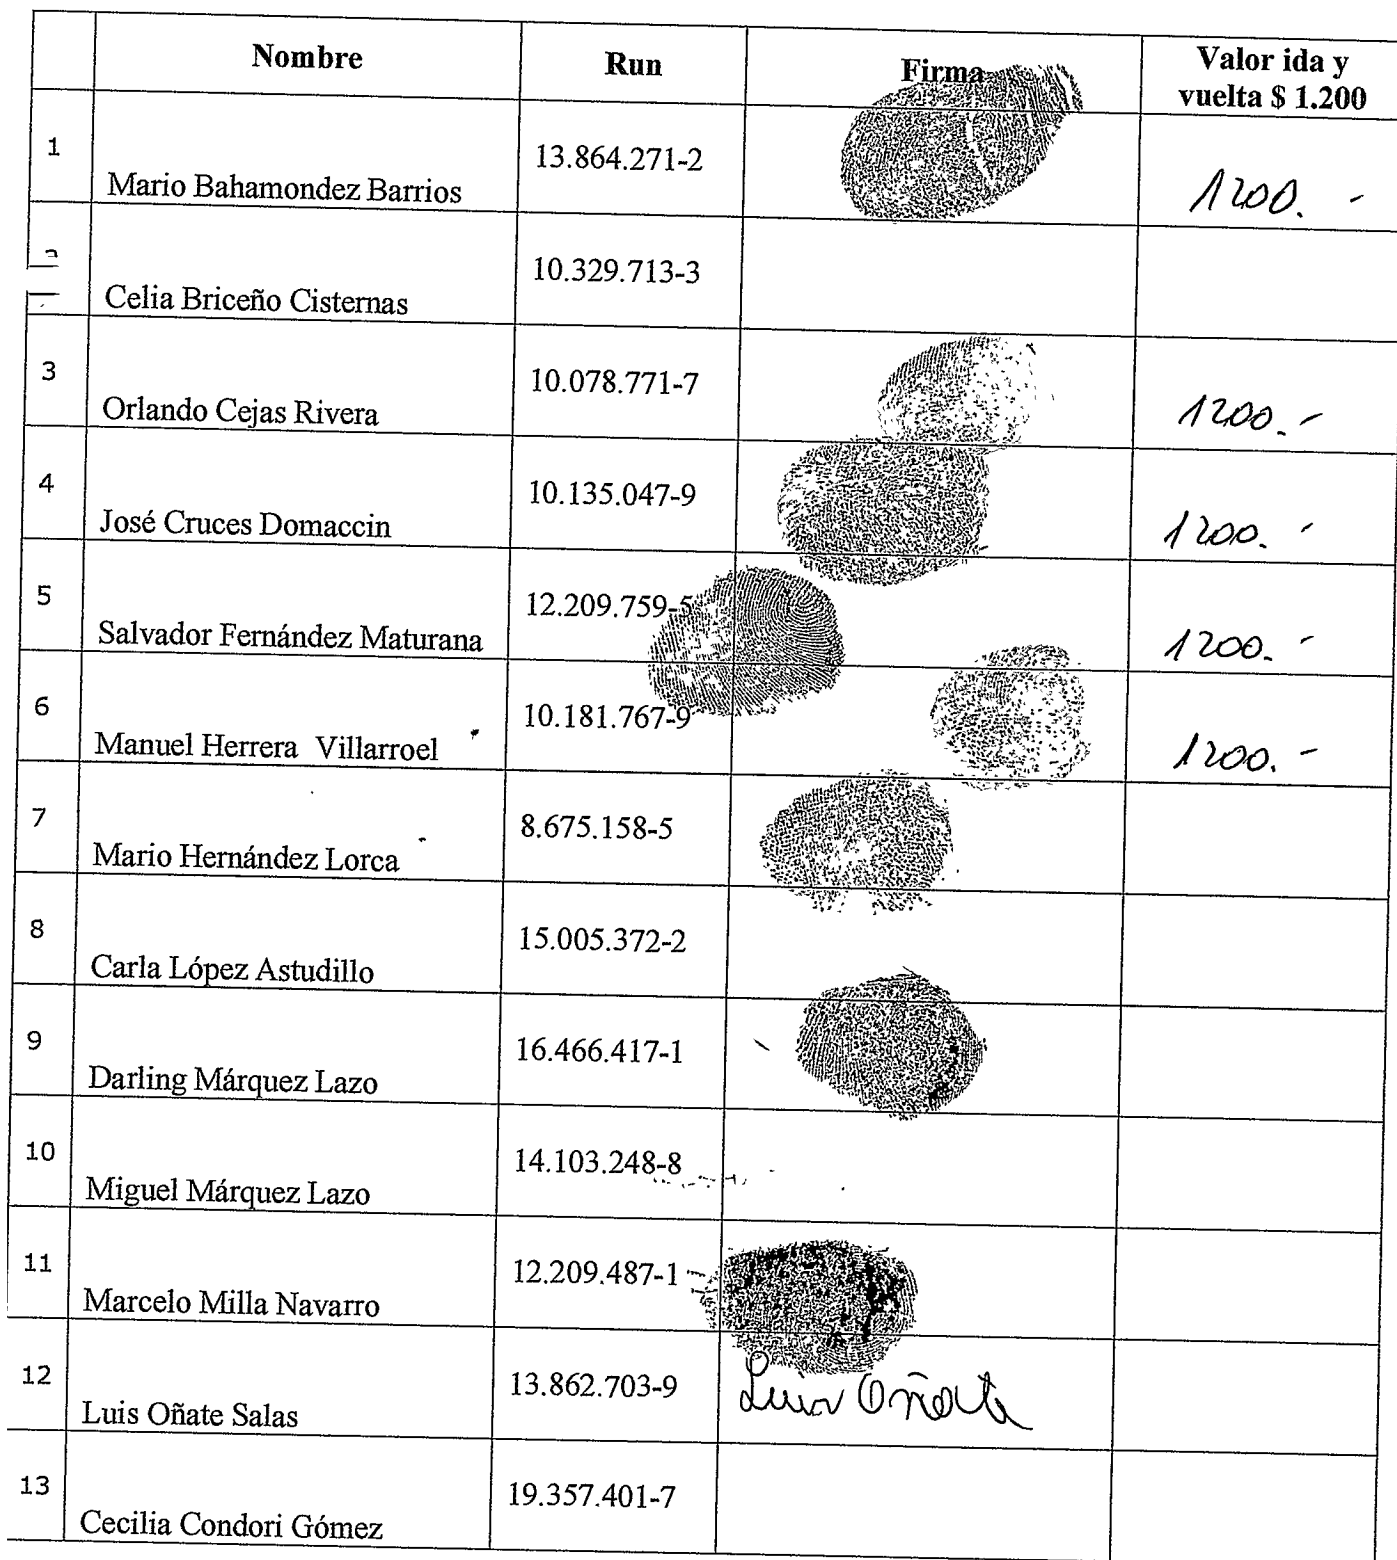 Nombre Run Firma Valor ida y
vuelta $ 1.200
1 Mario Bahamondez Barrios 13.864.271-2 1200.-
Celia Briceño Cisternas 10.329.713-3
3 Orlando Cejas Rivera 10.078.771-7 1200.-
4 José Cruces Domaccin 10.135.047-9 1200.-
5 Salvador Fernández Maturana 12.209.759-5 1200.-
6 Manuel Herrera Villarroel 10.181.767-9 1200.-
7 Mario Hernández Lorca 8.675.158-5
8 Carla López Astudillo 15.005.372-2
9 Darling Márquez Lazo 16.466.417-1
10 Miguel Márquez Lazo 14.103.248-8
11 Marcelo Milla Navarro 12.209.487-1
12 Luis Oñate Salas 13.862.703-9 Luis Oñate
13 Cecilia Condori Gómez 19.357.401-7